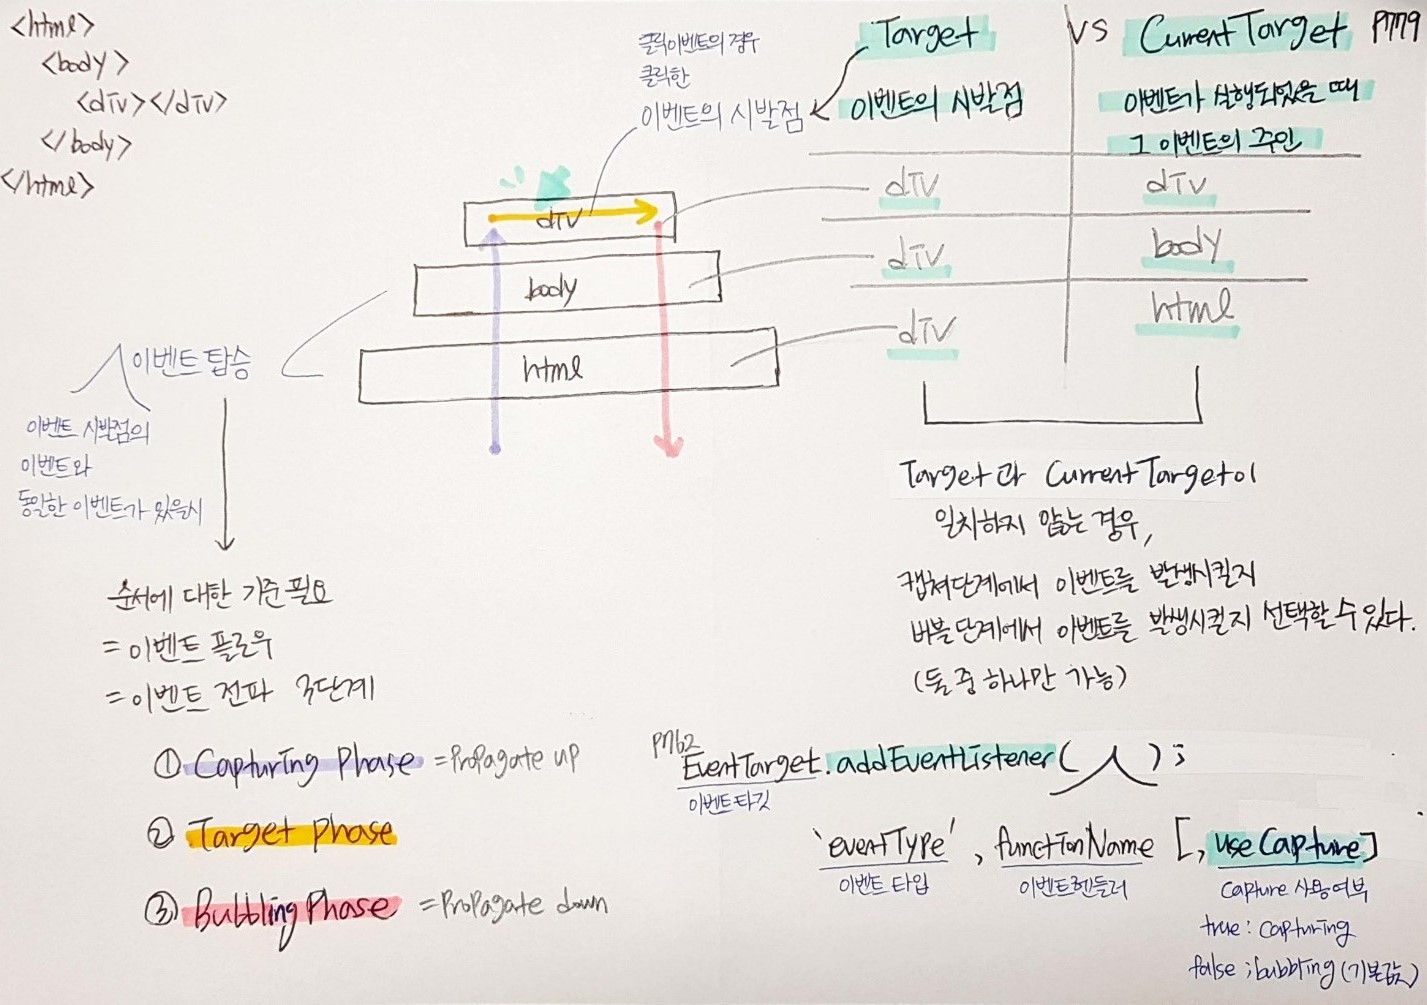 <html>
<body>
<div></div>
</body>
</html>
클릭이벤트의 경우
클릭한
이벤트의 시발점
Target VS CurrentTarget P779
이벤트의 시발점
이벤트가 실행되었을 때
그 이벤트의 주인
div div
div body
div html
div
body
html
이벤트 탑승
이벤트 시발점의
이벤트와
동일한 이벤트가 있을시
순서에 대한 기준 필요
= 이벤트 플로우
= 이벤트 전파 3단계
① Capturing Phase = Propagate up
② Target Phase
③ Bubbling Phase = Propagate down
Target과 CurrentTarget이
일치하지 않는 경우,
캡처단계에서 이벤트를 발생시킬지
버블단계에서 이벤트를 발생시킬지 선택할 수 있다.
(둘 중 하나만 가능)
P762
EventTarget.addEventListener( );
이벤트타깃
'eventType', functionName [, useCapture]
이벤트 타입 이벤트핸들러 capture 사용여부
true : capturing
false ; bubbling (기본값)